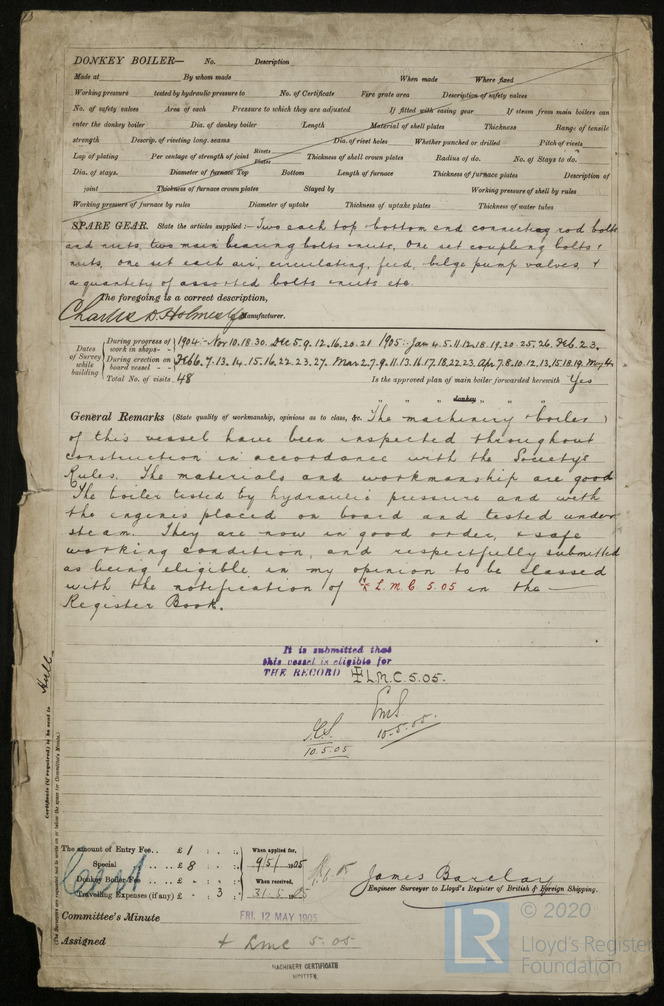 DONKEY BOILER— No. Description
Made at By whom made When made Where fixed
Working pressure tested by hydraulic pressure to No. of Certificate Fire grate area Description of safety valves
No. of safety valves Area of each Pressure to which they are adjusted If fitted with easing gear If steam from main boilers can
enter the donkey boiler Dia. of donkey boiler Length Material of shell plates Thickness Range of tensile
strength Descrip. of riveting long. seams Dia. of rivet holes Whether punched or drilled Pitch of rivets
Lap of plating Per centage of strength of joint Rivets Plates Thickness of shell crown plates Radius of do. No. of Stays to do.
Dia. of stays. Diameter of furnace Top Bottom Length of furnace Thickness of furnace plates Description of
joint Thickness of furnace crown plates Stayed by Working pressure of shell by rules
Working pressure of furnace by rules Diameter of uptake Thickness of uptake plates Thickness of water tubes
SPARE GEAR. State the articles supplied:— Two each top & bottom end connecting rod bolts
and nuts, two main bearing bolts & nuts, One set coupling bolts &
nuts, one set each air, circulating, feed, bilge pump valves, &
a quantity of assorted bolts & nuts etc.
The foregoing is a correct description,
Charles D. Holmes & Co Manufacturer.
Dates of Survey while building
During progress of work in shops - - 1904:- Nov 10.18.30. Dec 5.9.12.16.20.21 1905:- Jan 4.5.11.12.18.19.20.25.26. Feb. 2.3.
During erection on board vessel - - Feb 6.7.13.14.15.16.22.23.27. Mar 2.7.9.11.13.16.17.18.22.23. Apr 7.8.10.12.13.15.18.19. May 4.
Total No. of visits 48 Is the approved plan of main boiler forwarded herewith Yes
" " " donkey " " "
General Remarks (State quality of workmanship, opinions as to class, &c. The machinery & boiler
of this vessel have been inspected throughout
construction in accordance with the Society's
Rules. The materials and workmanship are good
The boiler tested by hydraulic pressure and with
the engines placed on board and tested under
steam. They are now in good order, & safe
working condition, and respectfully submitted
as being eligible in my opinion to be classed
with the notification of + L.M.C 5.05 in the
Register Book.
It is submitted that
this vessel is eligible for
THE RECORD + L.M.C. 5.05.
10.5.05.
10.5.05
Certificate (if required) to be sent to Hull
The amount of Entry Fee . . £ 1 : : When applied for,
Special . . £ 8 : : 9/5/1905
Donkey Boiler Fee . . £ - : : When received,
Travelling Expenses (if any) £ - : 3 : 31.5.1905
James Barclay
Engineer Surveyor to Lloyd's Register of British & Foreign Shipping.
Committee's Minute FRI. 12 MAY 1905
Assigned + LMC 5.05
MACHINERY CERTIFICATE
WRITTEN.
LR © 2020
Lloyd's Register
Foundation